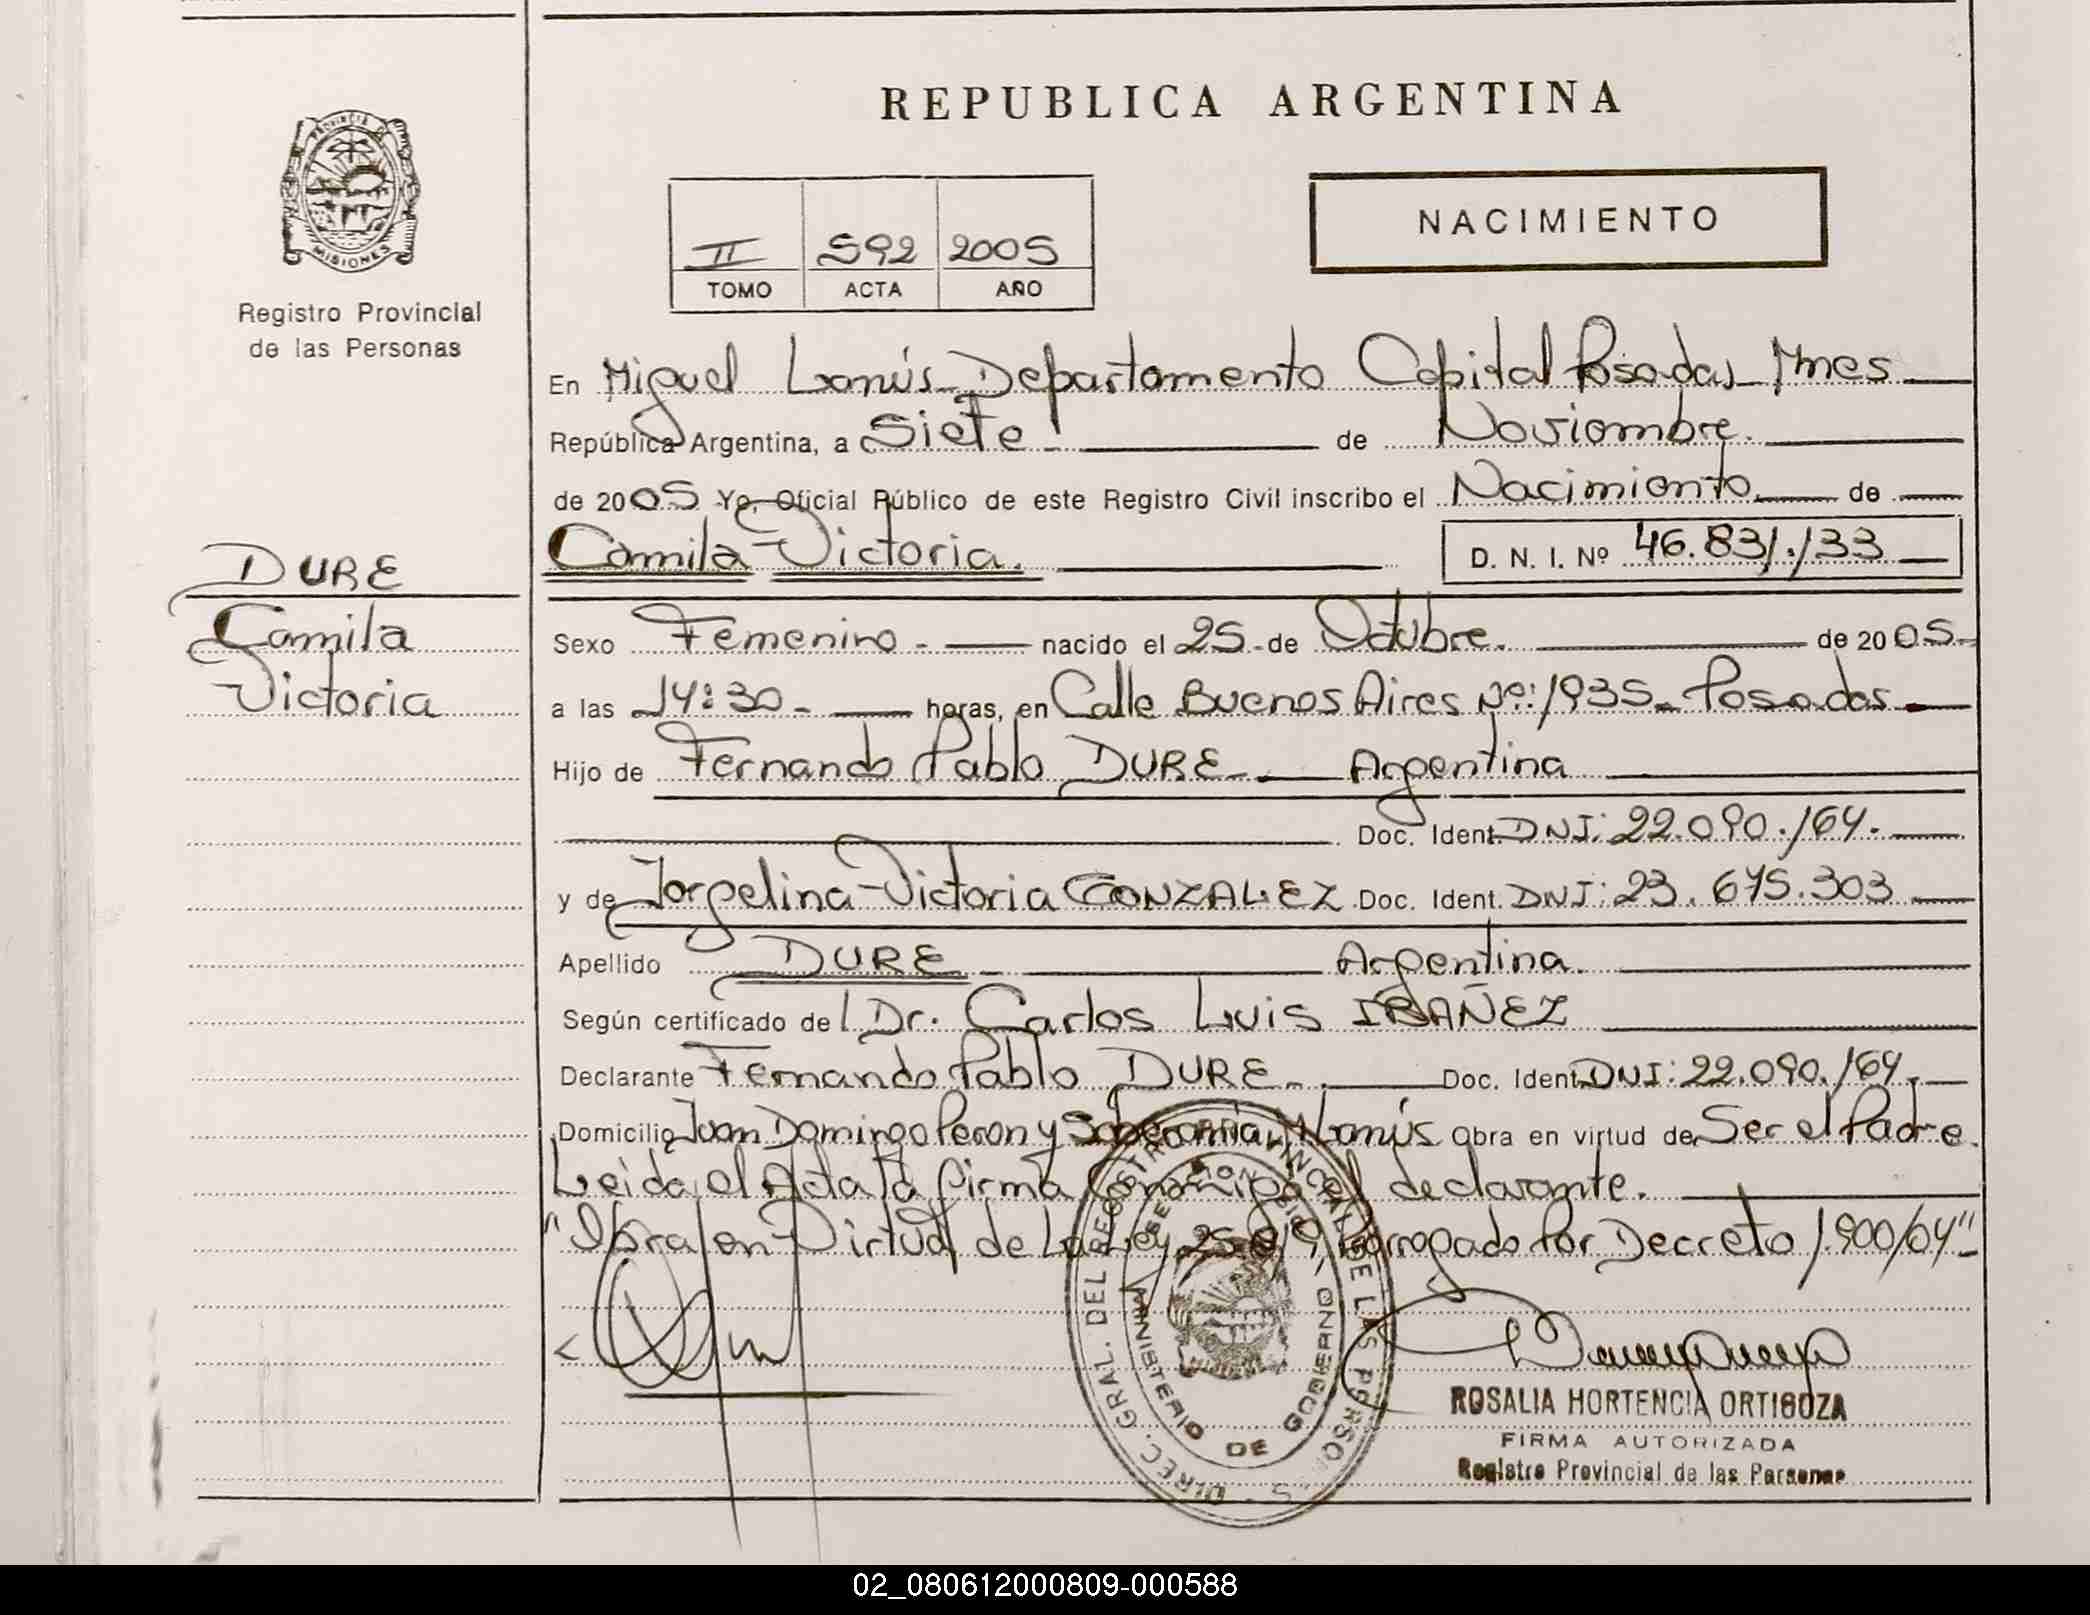 REPUBLICA ARGENTINA
PROVINCIA DE
MISIONES
Registro Provincial
de las Personas
II 592 2005
TOMO ACTA AÑO
NACIMIENTO
En Miguel Lanús - Departamento Capital Posadas Mnes
República Argentina, a Siete de Noviembre.
de 2005 Yo, Oficial Público de este Registro Civil inscribo el Nacimiento de
Camila Victoria. D. N. I. Nº 46.831.133
DURE
Camila
Victoria
Sexo Femenino - nacido el 25 - de Octubre. de 2005 -
a las 14:30 - horas, en Calle Buenos Aires Nº: 1935 - Posadas -
Hijo de Fernando Pablo DURE - Argentina
Doc. Ident. DNI: 22.090.164.
y de Jorgelina Victoria GONZALEZ Doc. Ident. DNI: 23.675.303
Apellido DURE - Argentina.
Según certificado del Dr. Carlos Luis IBAÑEZ
Declarante Fernando Pablo DURE - Doc. Ident. DNI: 22.090.164.
Domicilio Juan Domingo Peron y Soberania, M. Lanús Obra en virtud de Ser el Padre.
Leida el Acta la firma Conmigo el declarante.
"Obra en Virtud de La Ley 25.819 Prorrogado Por Decreto 1.900/04" -
DIREC. GRAL. DEL REGISTRO PROVINCIAL DE LAS PERSONAS
MINISTERIO DE GOBIERNO
MISIONES
ROSALIA HORTENCIA ORTIGOZA
FIRMA AUTORIZADA
Registro Provincial de las Personas
02_080612000809-000588